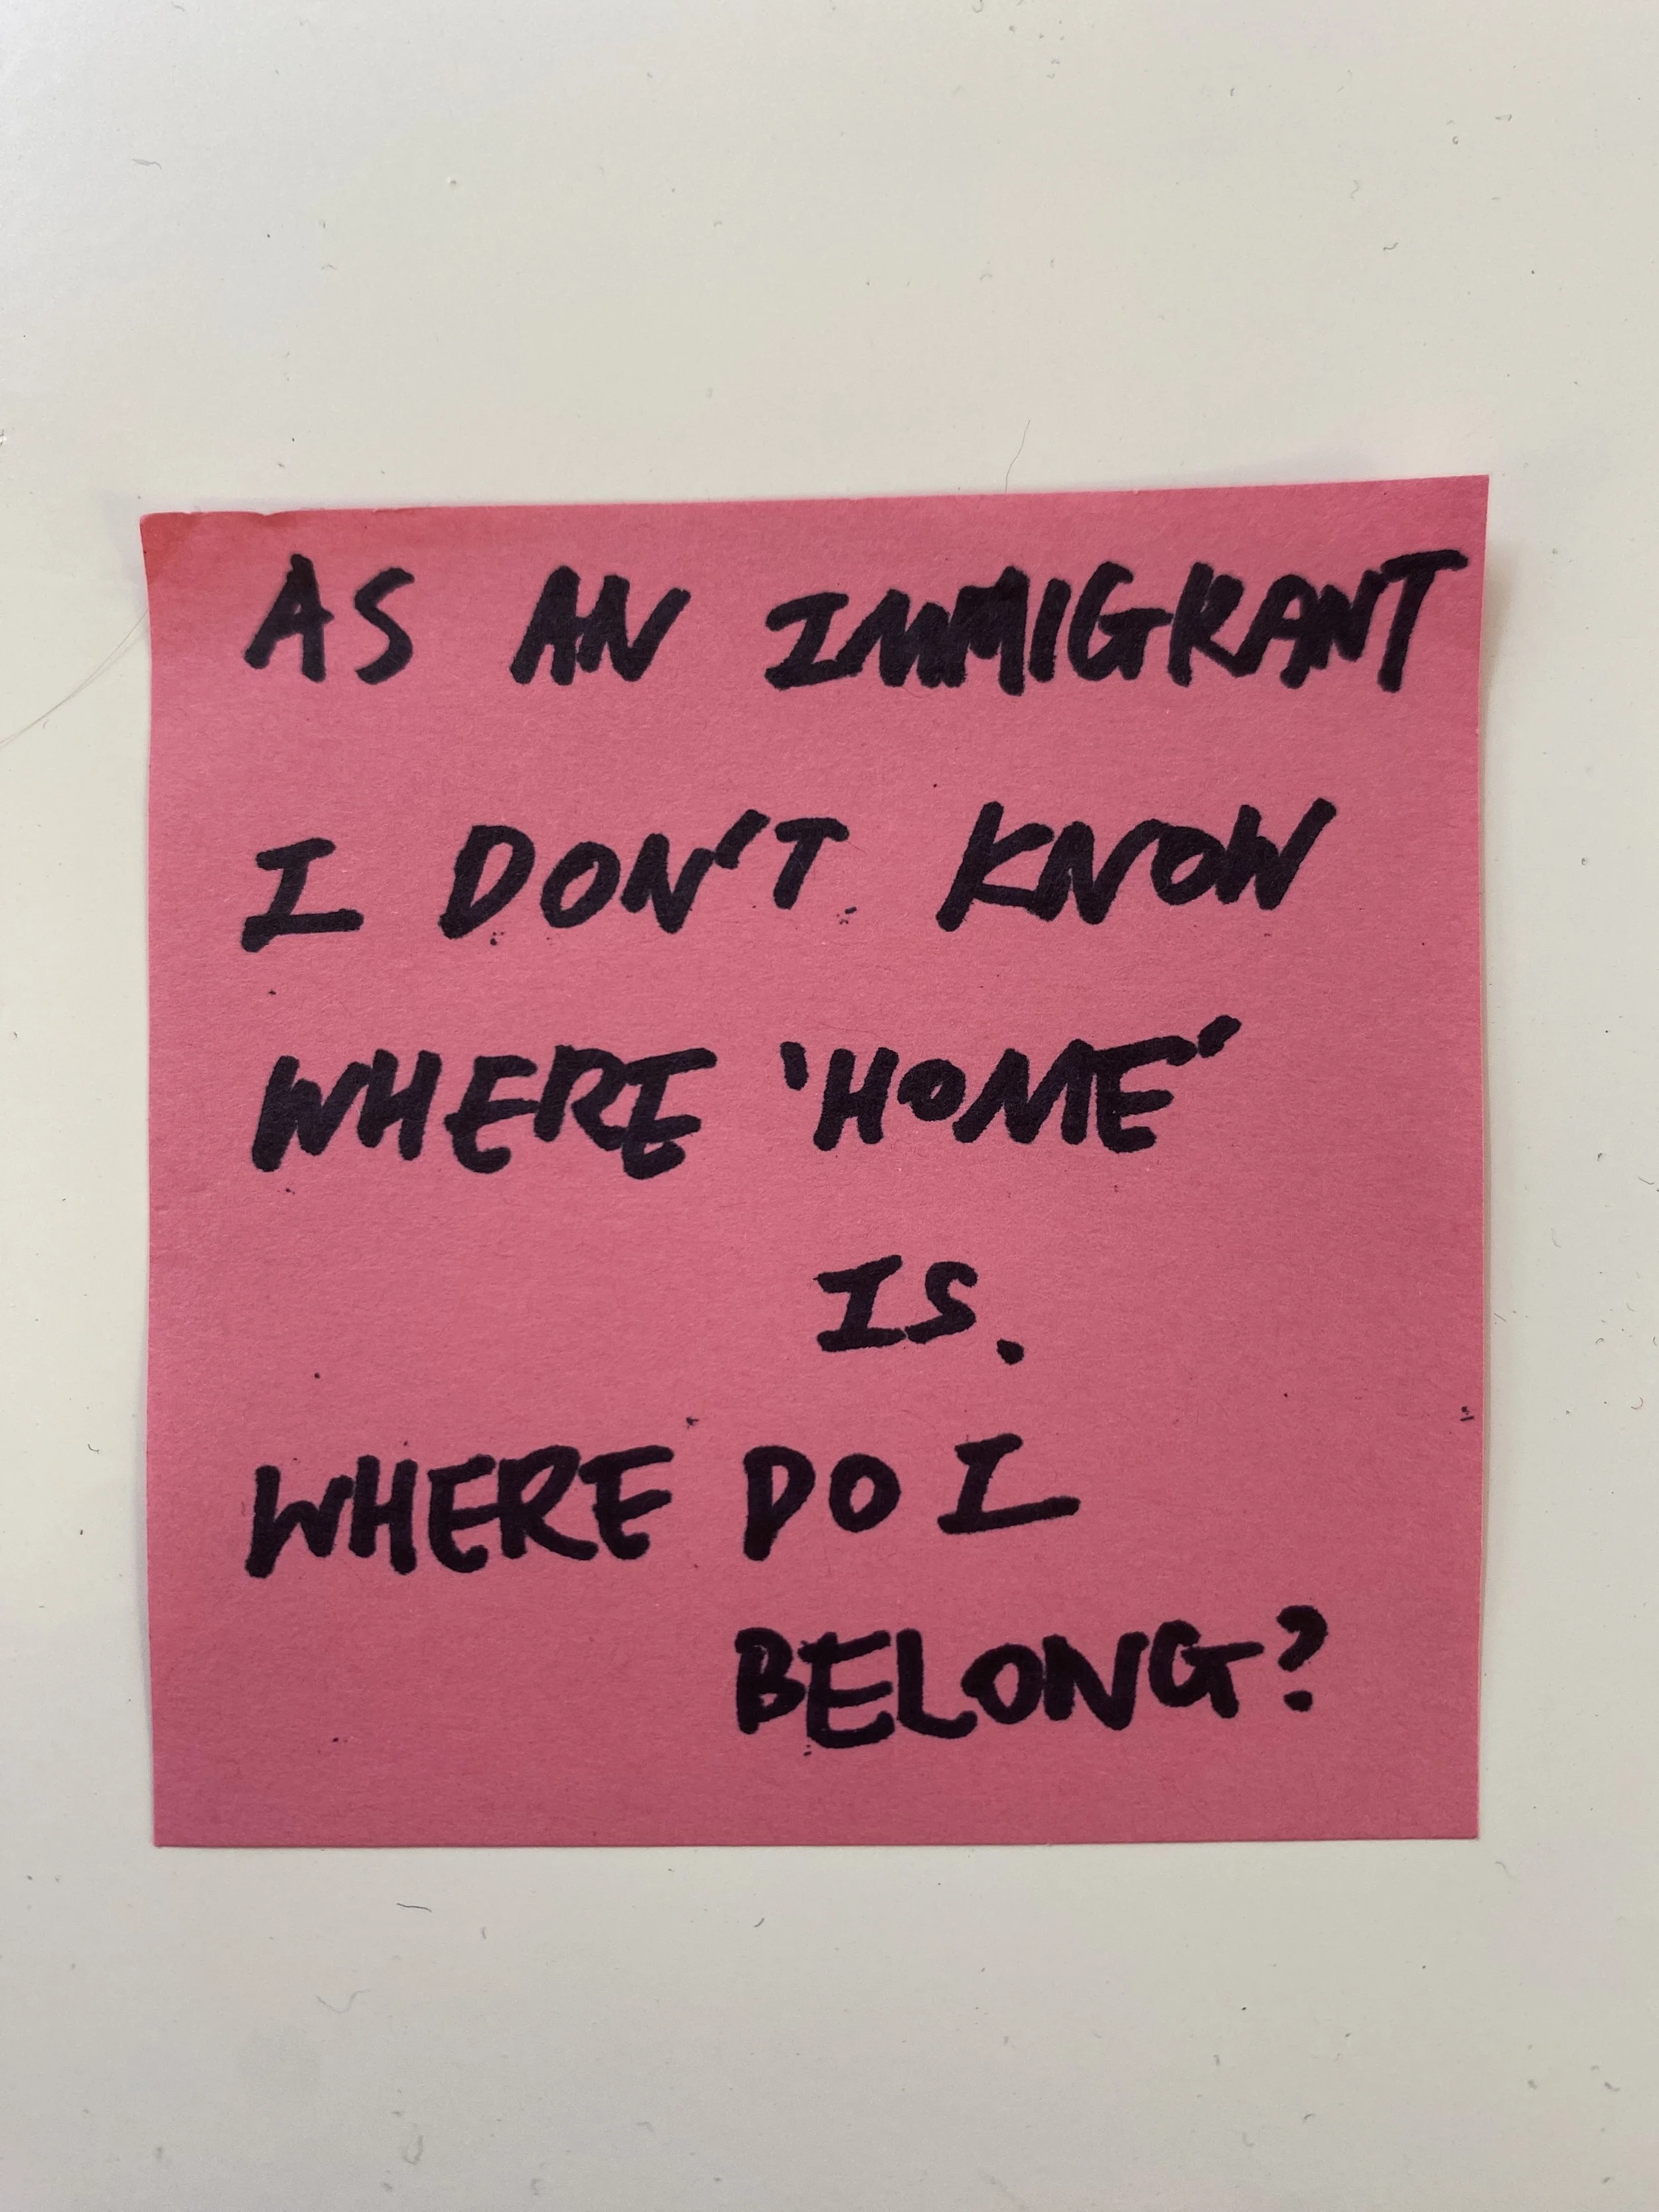 AS AN IMMIGRANT
I DON'T KNOW
WHERE 'HOME'
IS.
WHERE DO I
BELONG?